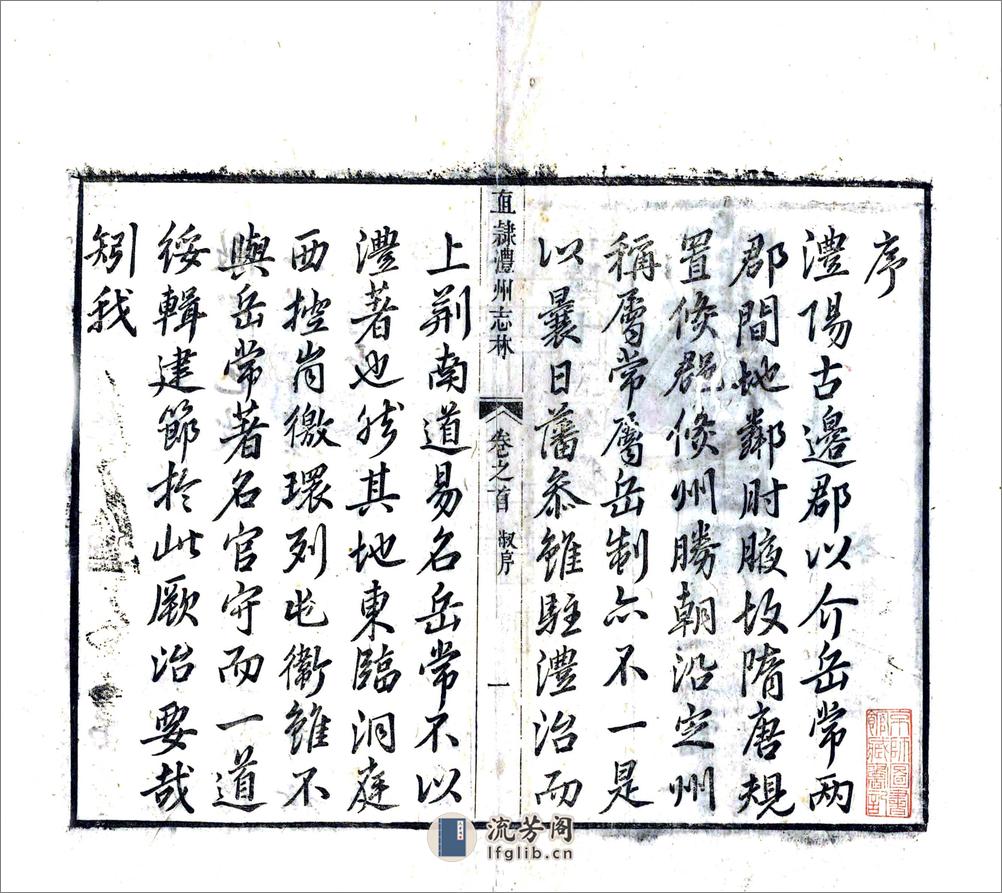 序
澧陽古邊郡以介岳常两
郡間地鄰肘腋故隋唐規
置倐郡倐州勝朝沿定州
稱屬常屬岳制亦不一是
以曩日藩叅雖駐澧治而
直隷澧州志林 卷之首 敘序 一
上荆南道易名岳常不以
澧著也然其地東臨洞庭
西控峝徼環列屯衛雖不
與岳常著名官守而一道
綏輯建節於此厥治要哉
矧我
京師圖書
館藏書記
流芳阁
lfglib.cn